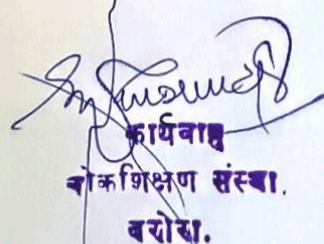 कार्यवाह
लोकशिक्षण संस्था,
वरोरा.